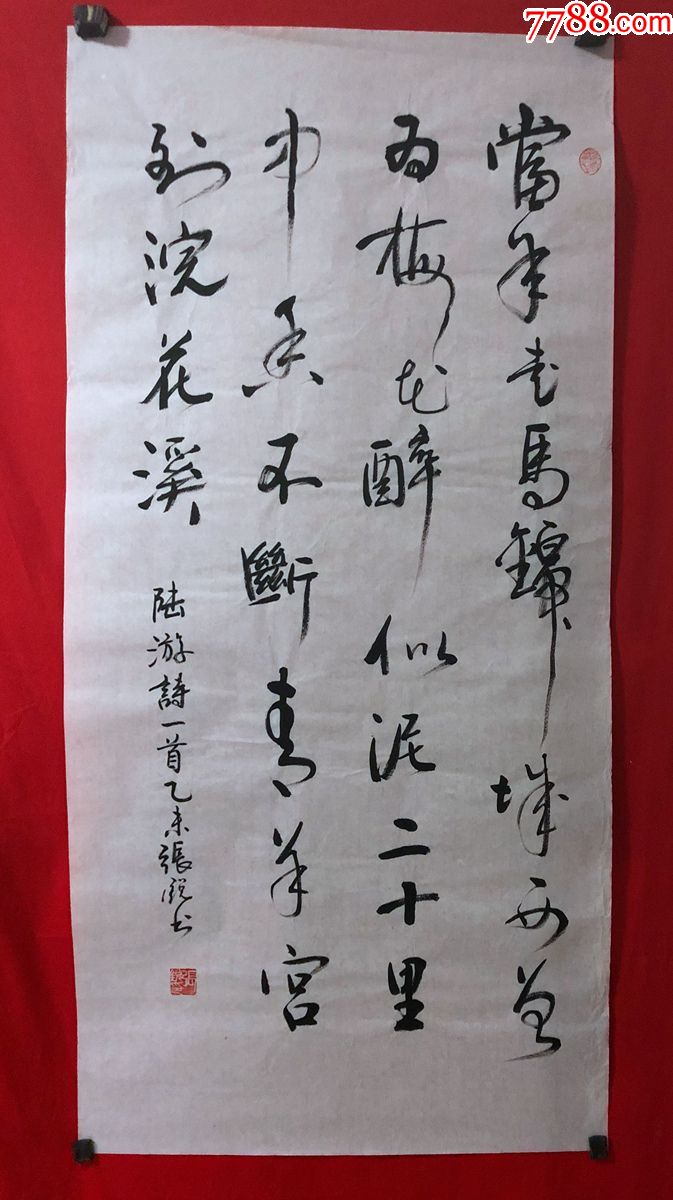 7788.com
當年走馬錦城西曾
為梅花醉似泥二十里
中香不斷青羊宮
到浣花溪
陸游詩一首乙未張書